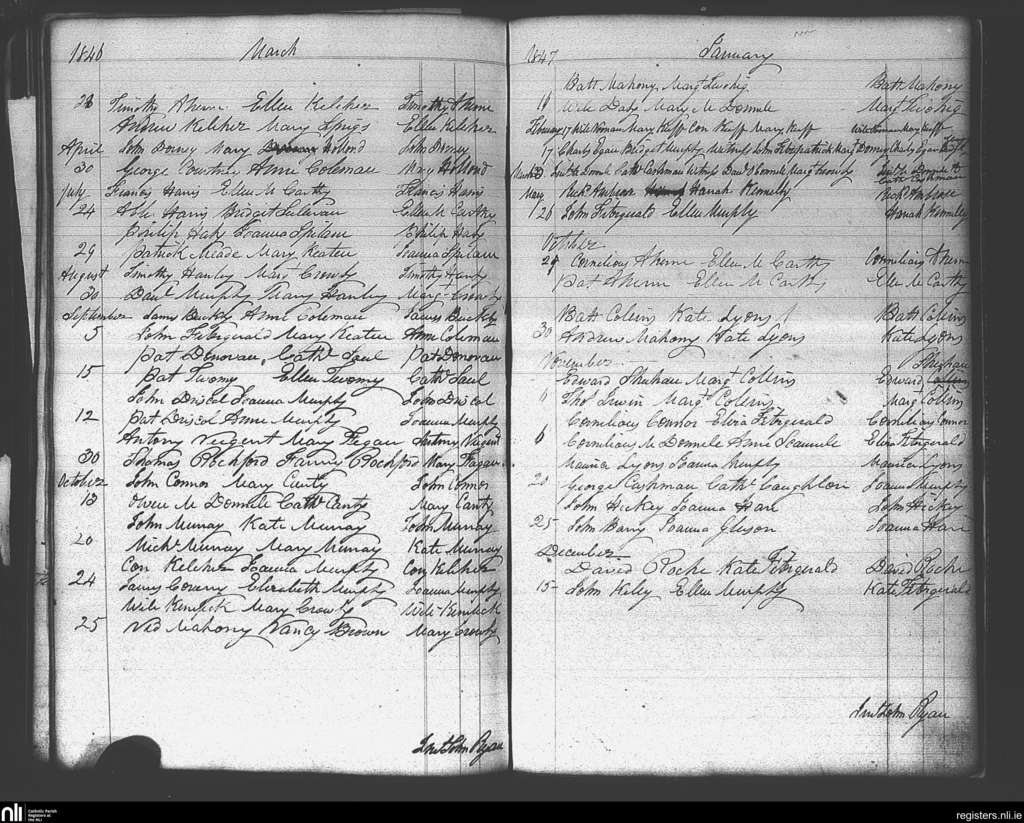 1846 March
28 Timothy Ahern Ellen Kelcher Timothy Ahern
Andrew Kelcher Mary Sprigs Ellen Kelcher
April John Dorney Mary Holland John Dorney
30 George Courtney Anne Coleman Mary Holland
July Francis Harris Ellen McCarthy Francis Harris
24 Harris Bridget Sulivan Ellen McCarthy
Philip Joanna Spilane Philip
29 Patrick Meade Mary Keateu Joanna Spilane
August Timothy Hanley Margt Crowly Timothy Hanly
30 Danl Murphy Mary Hanley Margt Crowly
September James Buckly Anne Coleman James Buckly
5 John Fitzgerald Mary Keateu Anne Coleman
Pat Donovan Cathe Saul Pat Donovan
15 Pat Twomy Ellen Twomy Cathe Saul
John Driscol Joanna Murphy John Driscol
12 Pat Driscol Anne Murphy Joanna Murphy
Antony Nugent Mary Flegan Antony Nugent
30 Thomas Rochford Fanny Rochford Mary Flagan
October John Connor Mary Canty John Connor
13 Owen McDonnell Cathe Canty Mary Canty
John Murray Kate Murray John Murray
20 Michl Murray Mary Murray Kate Murray
Con Kelcher Joanna Murphy Con Kelcher
24 James Elizabeth Murphy Joanna Murphy
Will Mary Crowly Will
25 Ned Mahony Nancy Brown Mary Crowly
John Ryan
1847 January
Batt Mahony Margt Twohig Batt Mahony
16 Will Daly Mary McDonnele Margt Twohig
February 17 Will Noonan Mary Con Mary Will Noonan Mary
17 Charly Egan Bridget Murphy Witness John Fitzpatrick Mary Dorney Charly Egan
March Cashman Witness Danl Margt Twomly
May Richd Hanah Richd
26 John Fitzgerald Ellen Murphy Hanah
October
29 Cornelious Ahern Ellen McCarthy Cornelious Ahern
Pat Ahern Ellen McCarthy Ellen McCarthy
Batt Collins Kate Lyons Batt Collins
30 Andrew Mahony Kate Lyons Kate Lyons
November
Edward Shehan Margt Collins Edward Shehan
6 Thos Irwin Margt Collins Marg Collins
Cornelious Connor Eliza Fitzgerald Cornelious Connor
6 Cornelious McDonnele Anne Eliza Fitzgerald
Maurice Lyons Joanna Murphy Maurice Lyons
20 George Cashman Cathe Coughlon Joanna Murphy
John Hickey Joanna Hare John Hickey
25 John Barry Joanna Gleson Joanna Hare
December
David Roche Kate Fitzgerald David Roche
15 John Kiley Ellen Murphy Kate Fitzgerald
John Ryan
nli Catholic Parish
Registers at
the NLI
registers.nli.ie